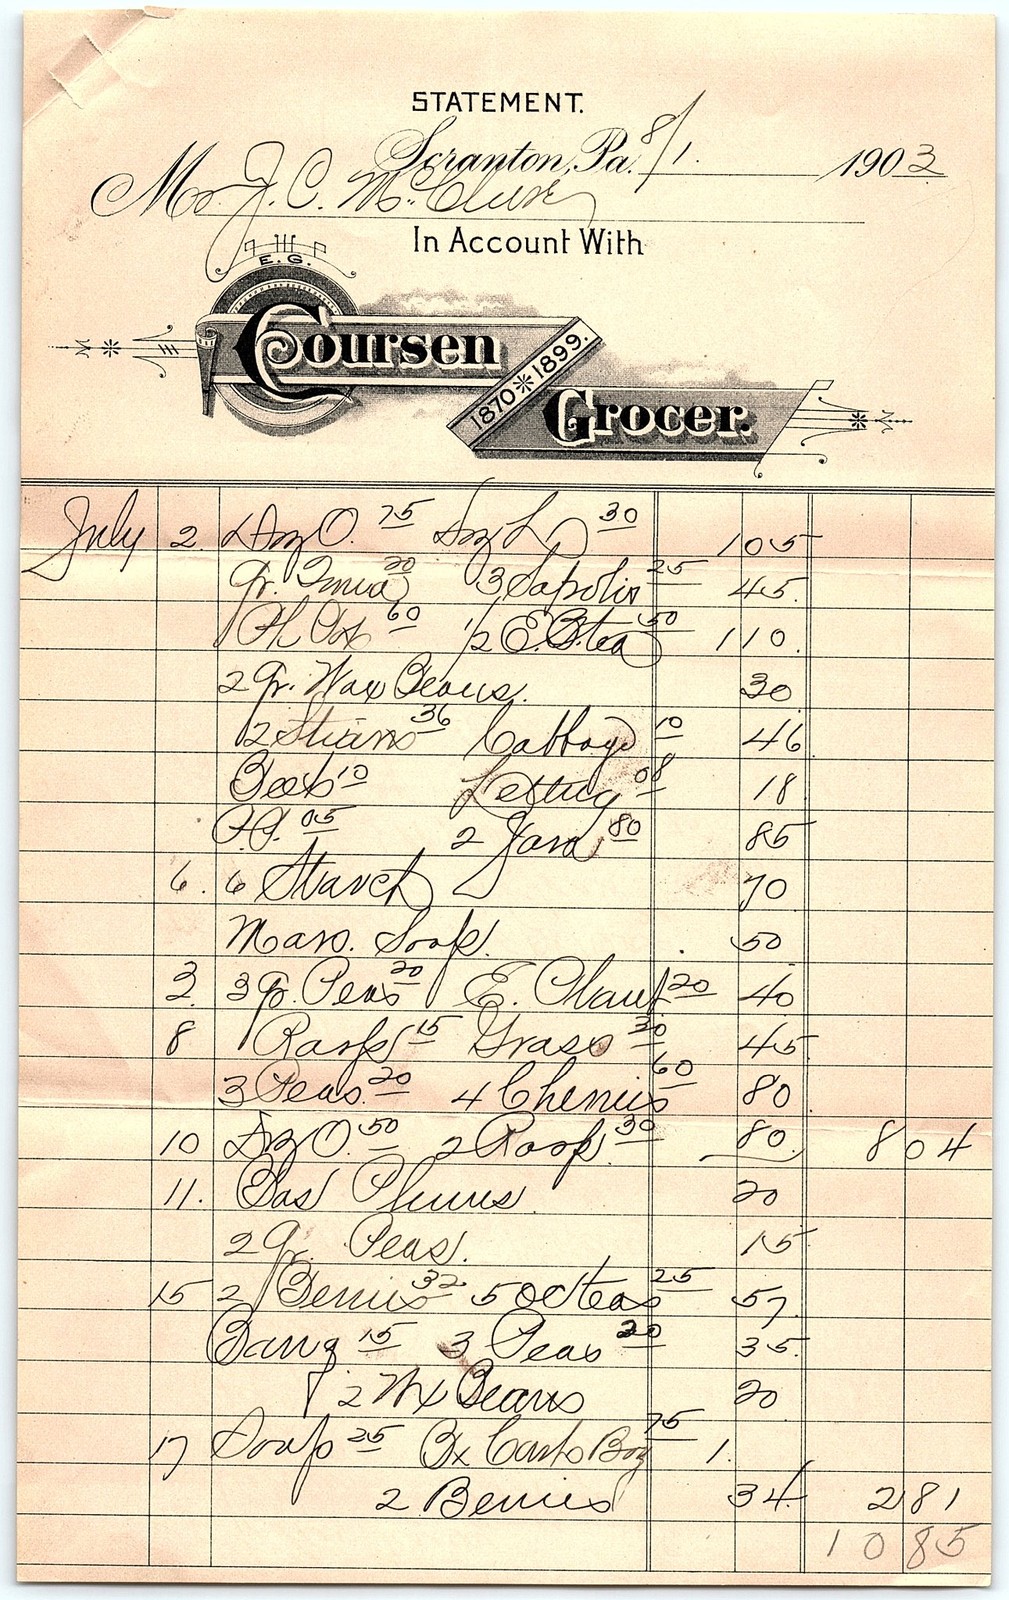 STATEMENT.
Scranton, Pa. 8/1. 1903
Mr J. C. McClure
In Account With
E. G.
Coursen
1870 * 1899.
Grocer.
July 2. Dz O. 75 Dz L 30 105
Qr. 20 3 Sapolio 25 45
60 1/2 E. B. tea 50 110.
2 Qr. Wax Beans. 30
2 36 Cabbage 10 46
Beets 10 08 18
05 2 Java 80 85
6. 6 Starch 70
Mars. Soap. 50
3. 3 Qr. Peas 20 E. Plant 20 40
8 Rasp 15 Grass 30 45
3 Peas. 20 4 Cherries 60 80
10 Dz O. 50 2 Rasp. 30 80. 804
11. Bas Plums 20
2 Qr. Peas. 15
15 2 Berries 32 5 25 57
15 3 Peas 20 35
2 Wx Beans 20
17 Soap 25 Bx 75 1.
2 Berries 34 281
1085